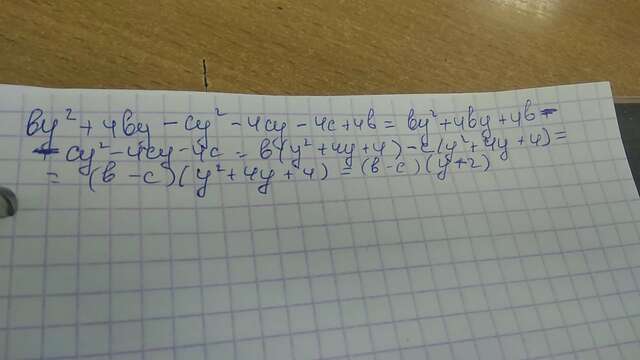 вy² + 4вy - cy² - 4cy - 4c + 4в = вy² + 4вy + 4в -
- cy² - 4cy - 4c = в(y² + 4y + 4) - c(y² + 4y + 4) =
= (в - c)(y² + 4y + 4) = (в - c)(y + 2)